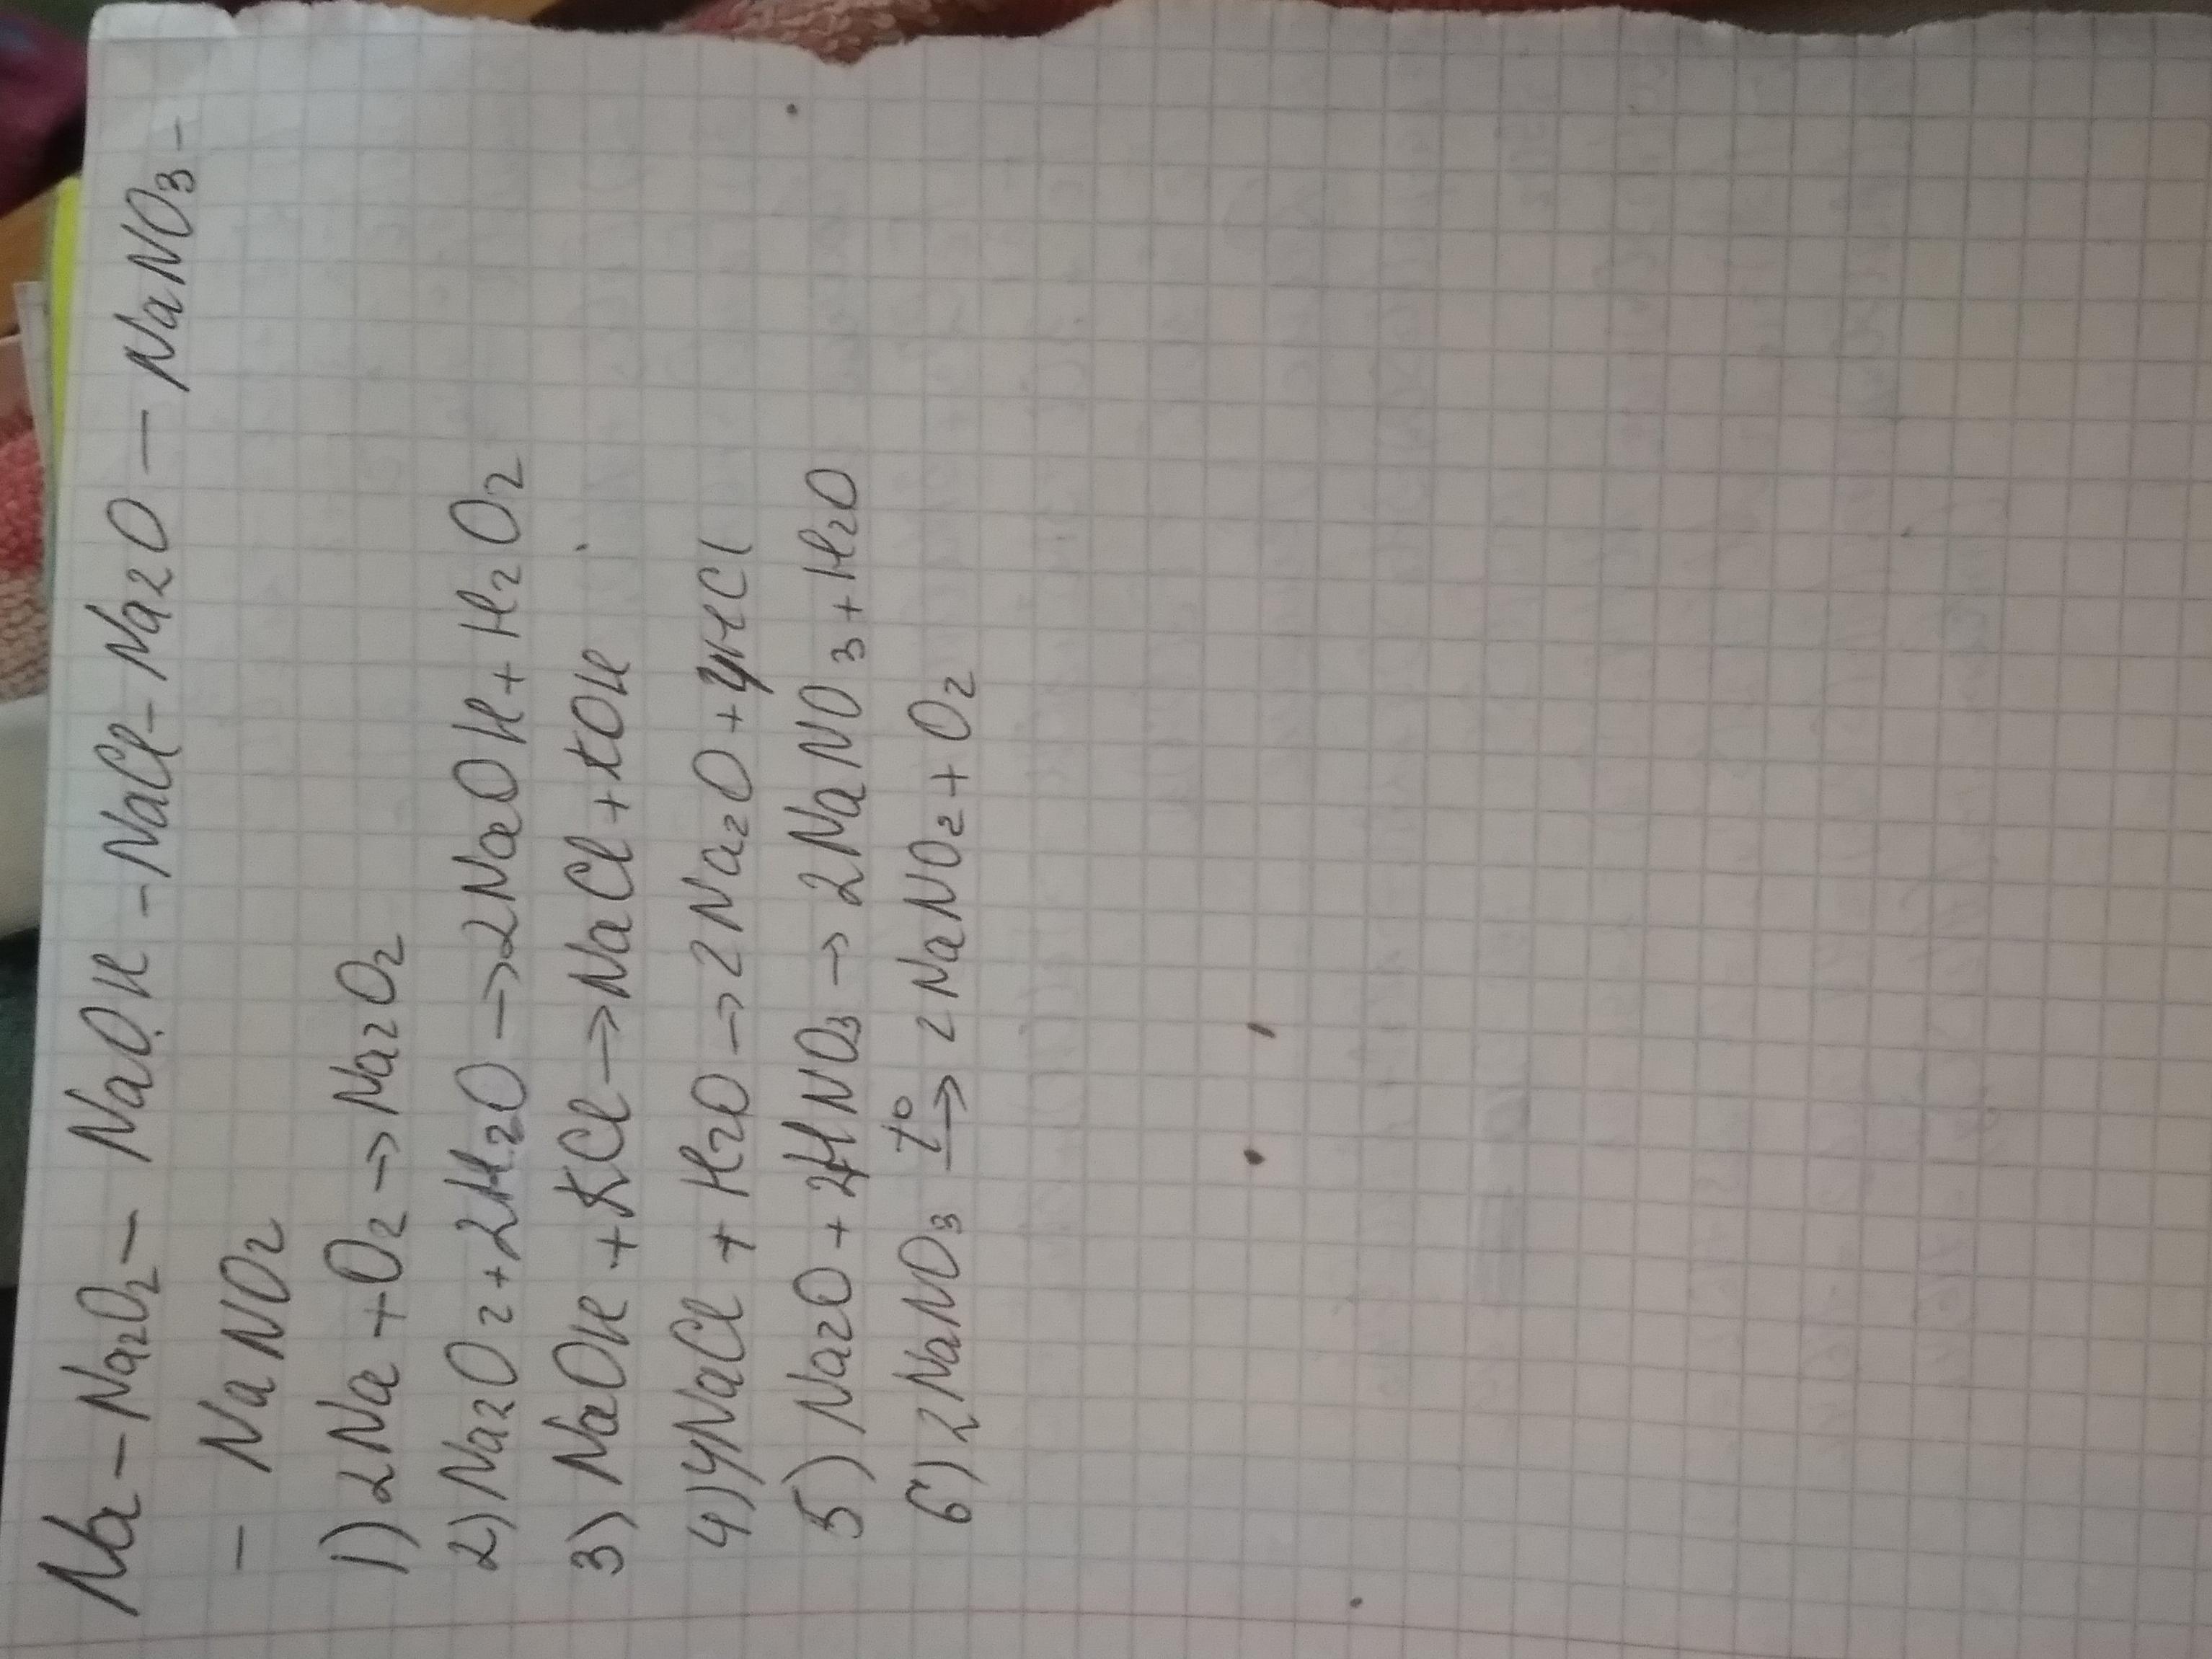 Na - Na2O2 - NaOH - NaCl - Na2O - NaNO3 -
- NaNO2
1) 2Na + O2 → Na2O2
2) Na2O2 + 2H2O → 2NaOH + H2O2
3) NaOH + KCl → NaCl + KOH
4) 4NaCl + H2O → 2Na2O + 4HCl
5) Na2O + 2HNO3 → 2NaNO3 + H2O
6) 2NaNO3 t° → 2NaNO2 + O2